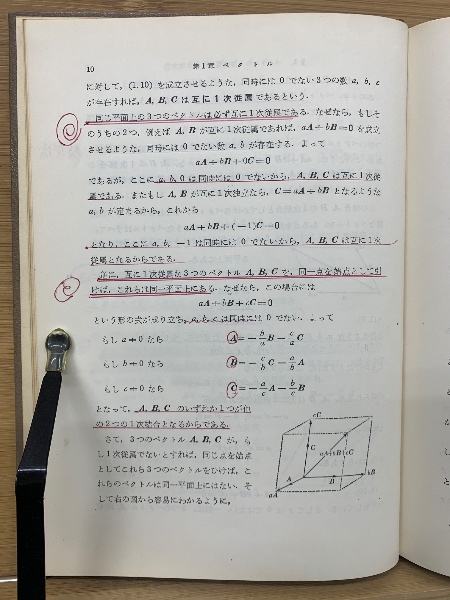 10 第1章 ベクトル
に対して，(1.10) を成立させるような，同時には 0 でない3つの数 a, b, c
が存在すれば，A, B, C は互に1次従属であるという．
同じ平面上の3つのベクトルは必ず互に1次従属である．なぜなら，もしそ
のうちの2つ，例えば A, B が互に1次従属であれば，aA+bB=0 を成立
させるような，同時には 0 でない数 a, b が存在する．よって
aA+bB+0C=0
であるが，ここに a, b, 0 は同時には 0 でないから，A, B, C は互に1次従
属である．またもし A, B が互に1次独立なら，C=aA+bB となるような
a, b が定まるから，これから
aA+bB+(−1)C=0
となり，ここに a, b, −1 は同時には 0 でないから，A, B, C は互に1次
従属となるからである．
逆に，互に1次従属な3つのベクトル A, B, C を，同一点を始点として引
けば，これらは同一平面上にある．なぜなら，この場合には
aA+bB+cC=0
という形の式が成り立ち，a, b, c は同時には 0 でない．よって
もし a≠0 なら A=−b/a B−c/a C
もし b≠0 なら B=−c/b C−a/b A
もし c≠0 なら C=−a/c A−b/c B
となって，A, B, C のいずれか1つが他
の2つの1次結合となるからである．
さて，3つのベクトル A, B, C が，も
し1次従属でないとすれば，同じ点を始点
としてこれら3つのベクトルをひけば，こ
れらのベクトルは同一平面上にはない．そ
して右の図から容易にわかるように，
cC
C
aA+bB+cC
A
B
bB
aA